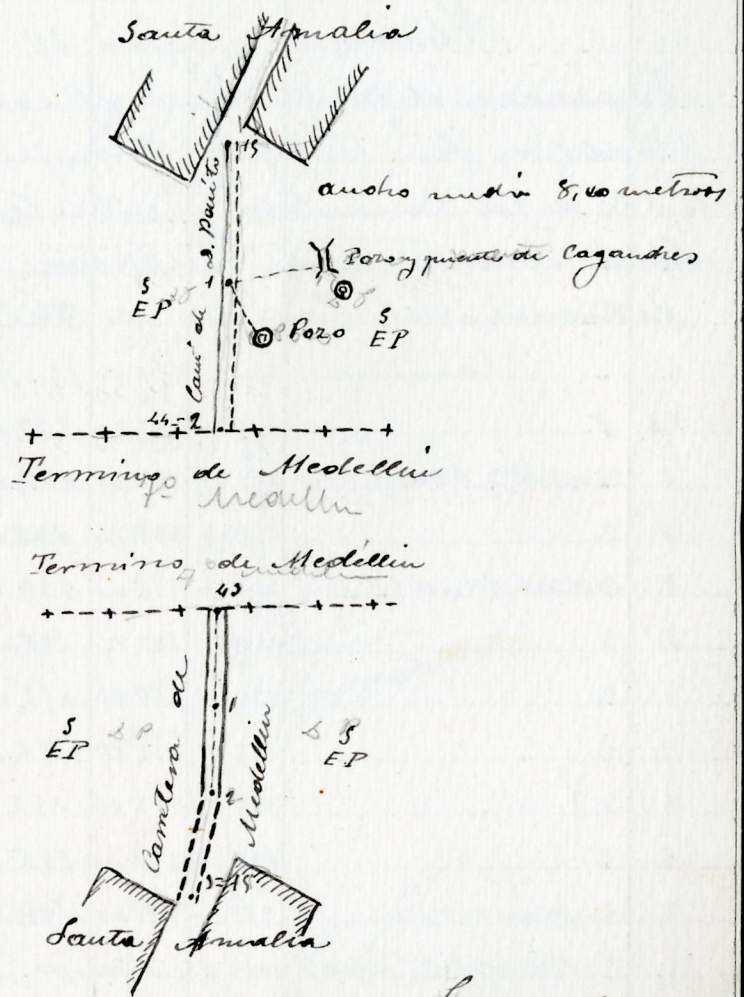 Santa Amalia
15
ancho medio 8,40 metros
Cam.º de
Pozo y puente de Cagandres
1
S
EP
Pozo
S
EP
44=2
Termino de Medellin
Medellin
Termino de Medellin
43
1
S
EP
S
EP
Carretera de Medellin
2
3=18
Santa Amalia